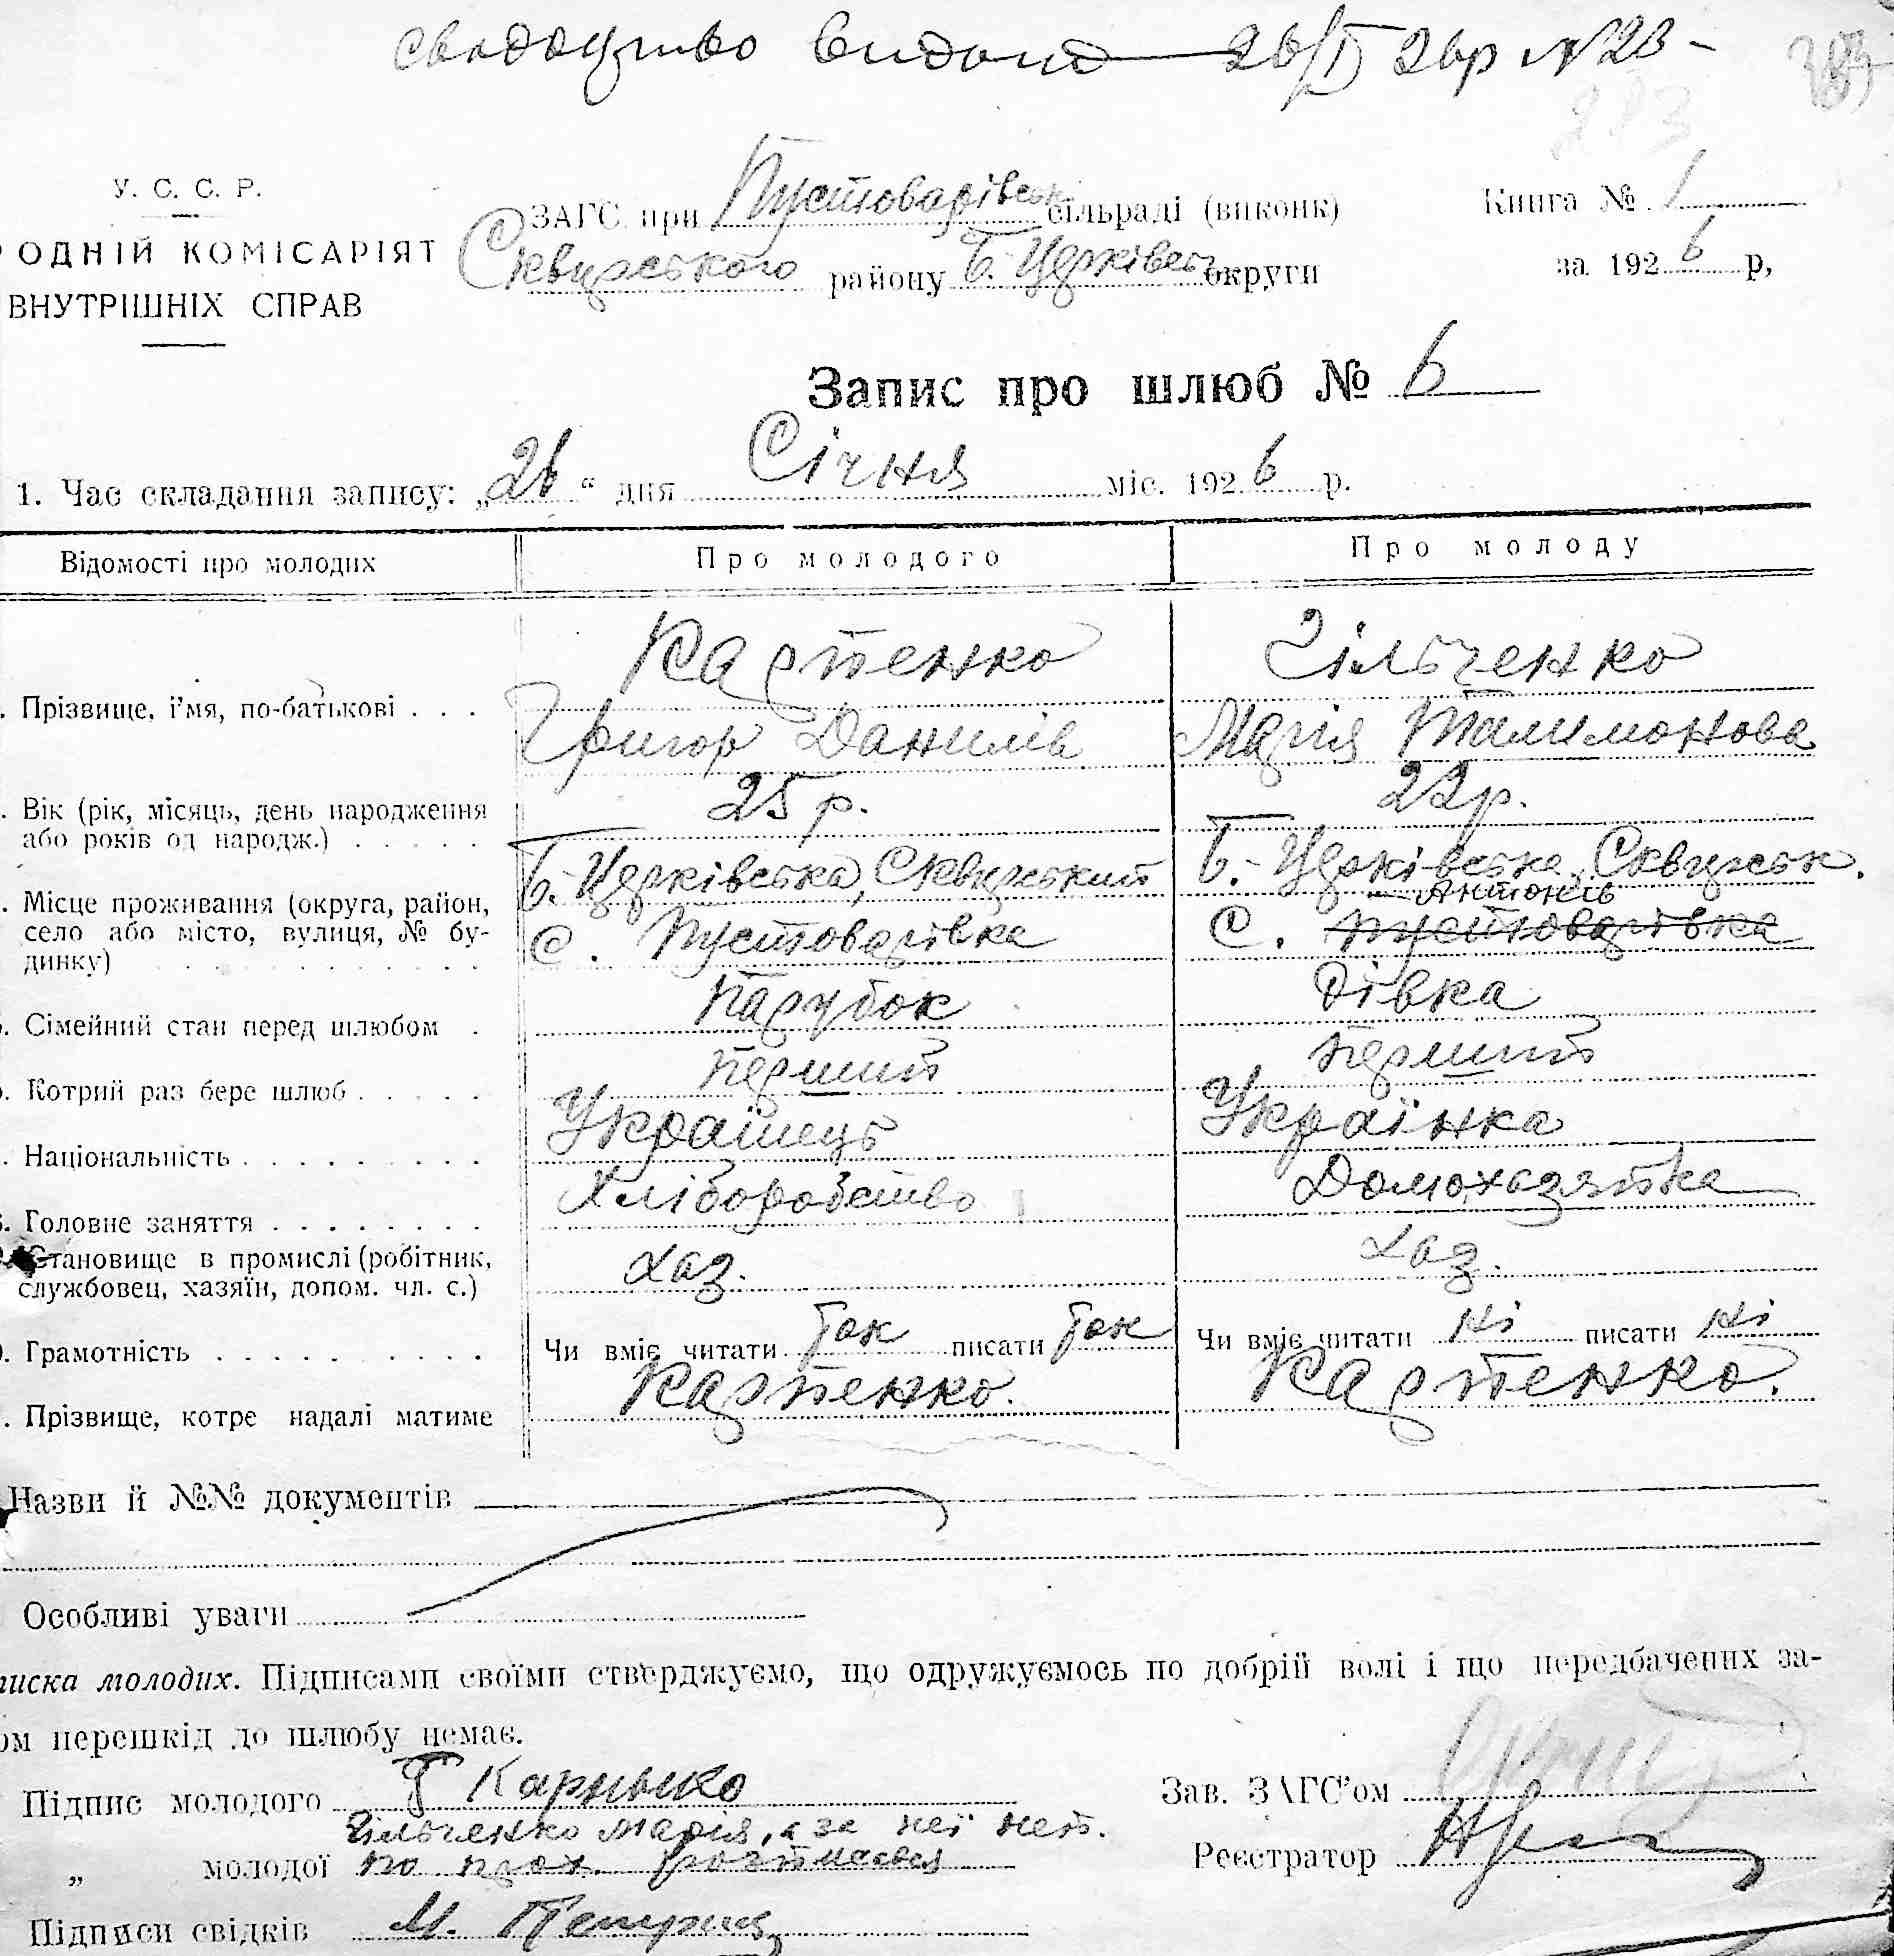 свідоцтво видано 26/І 26р №23 -
У. С. С. Р.
ЗАГС при Пустоварівськ сільраді (виконк) Книга № 1
РОДНІЙ КОМІСАРІЯТ Сквирського району Б. Церківськ округи за 1926 р,
ВНУТРІШНІХ СПРАВ
Запис про шлюб № 6
1. Час складання запису: „26“ дня Січня міс. 1926 р.
Відомості про молодих Про молодого Про молоду
Карпенко Гільченко
Прізвище, ім'я, по-батькові . . . Григор Данилів Марія Талимонова
Вік (рік, місяць, день народження або років од народж.) . . . . . 25 р. 22 р.
Б.-Церківська, Сквирський Б.-Церківська, Сквирськ.
Місце проживання (округа, район, Антонів
село або місто, вулиця, № бу- с. Пустоварівка с. Пустоварівка
динку) . . . . . . . . . . .
Сімейний стан перед шлюбом . Парубок дівка
Котрий раз бере шлюб . . . . . перший перший
Національність . . . . . . . . . Українець Українка
Головне заняття . . . . . . . . Хліборобство Домохазяйка
Становище в промислі (робітник,
службовец, хазяїн, допом. чл. с.) хаз. хаз.
Грамотність . . . . . . . . . . Чи вміє читати так писати так Чи вміє читати ні писати ні
Прізвище, котре надалі матиме Карпенко. Карпенко.
Назви й №№ документів
Особливі уваги
писка молодих. Підписами своїми стверджуємо, що одружуємось по добрій волі і що передбачених за-
ом перешкід до шлюбу немає.
Підпис молодого Г Карпенко Зав. ЗАГС'ом
Гільченко Марія, а за неї неп.
„ молодої по прох. розписався Реєстратор
Підписи свідків М.